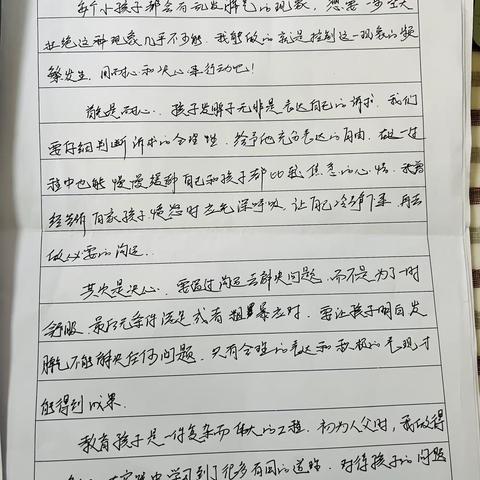 每个小孩子都会有乱发脾气的现象，想要一步全
杜绝这种现象几乎不可能，我能做的就是控制这一现象的频
繁发生，用耐心和决心来行动吧！
首先是耐心，孩子发脾子无非是表达自己的诉求，我们
要仔细判断诉求的合理性，给予他充分表达的自由，在这一过
程中也能慢慢缓解自己和孩子都比较焦急的心情，我曾
经告诉自家孩子愤怒时先深呼吸，让自己冷静下来，再去
做必要的沟通。
其次是决心，要通过沟通去解决问题，而不是为了一时
舒服，最后无条件满足或者粗暴应对，要让孩子明白发
脾气不能解决任何问题，只有合理的表达和积极的表现才
能得到成果．
教育孩子是一件复杂而伟大的工程，初为人父时，我觉得
实践中学习到了很多有用的道路，对待孩子的问题